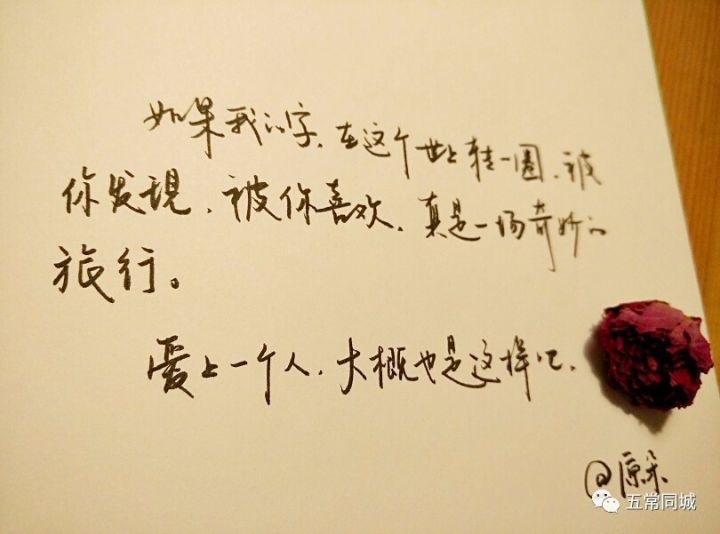 如果我的字、在这个世上转一圈、被
你发现、被你喜欢、真是一场奇妙的
旅行。
爱上一个人、大概也是这样吧、
@原呆
五常同城